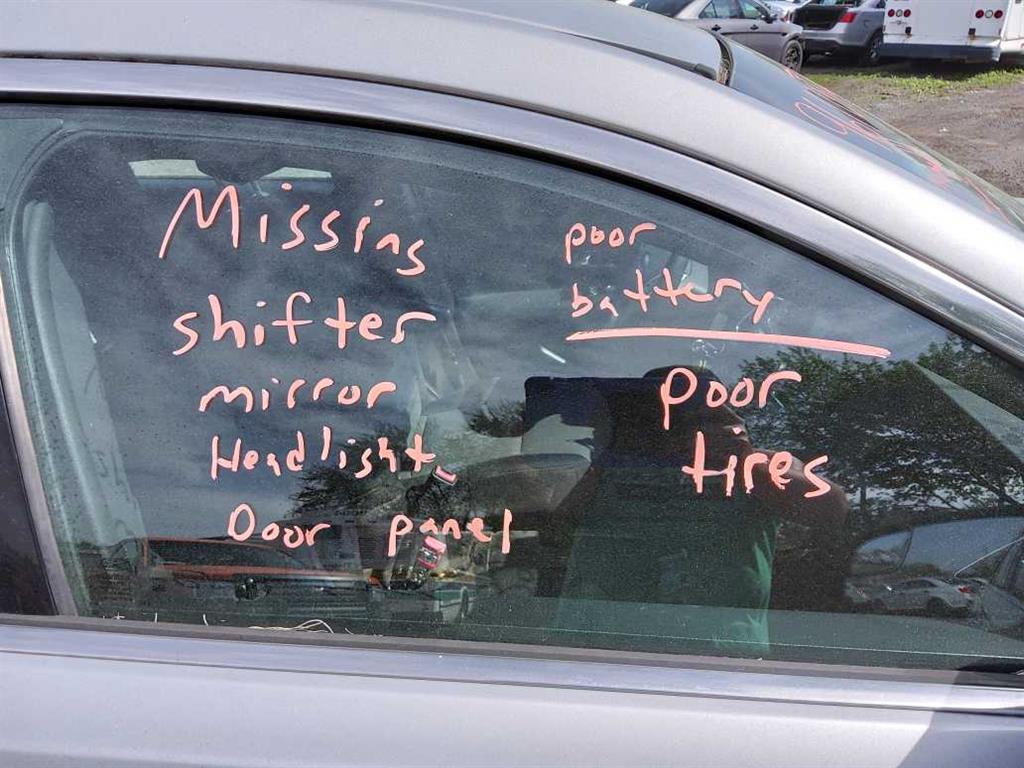 Missing
shifter
mirror
Headlight
Door panel
poor
battery
poor
tires